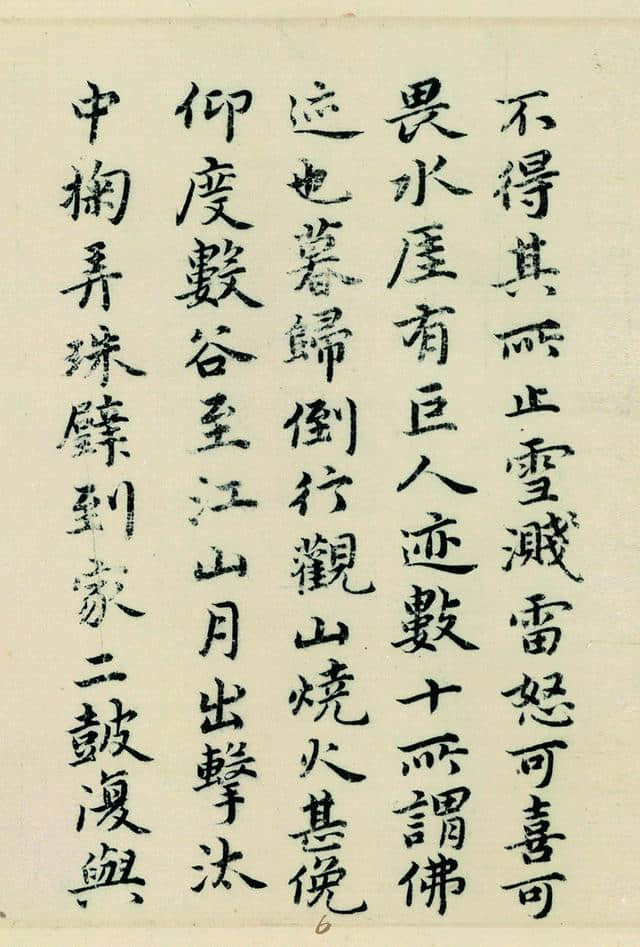 不得其所止雪濺雷怒可喜可
畏水厓有巨人迹數十所謂佛
迹也暮歸倒行觀山燒火甚俛
仰度數谷至江山月出擊汰
中掬弄珠璧到家二鼓復與
6